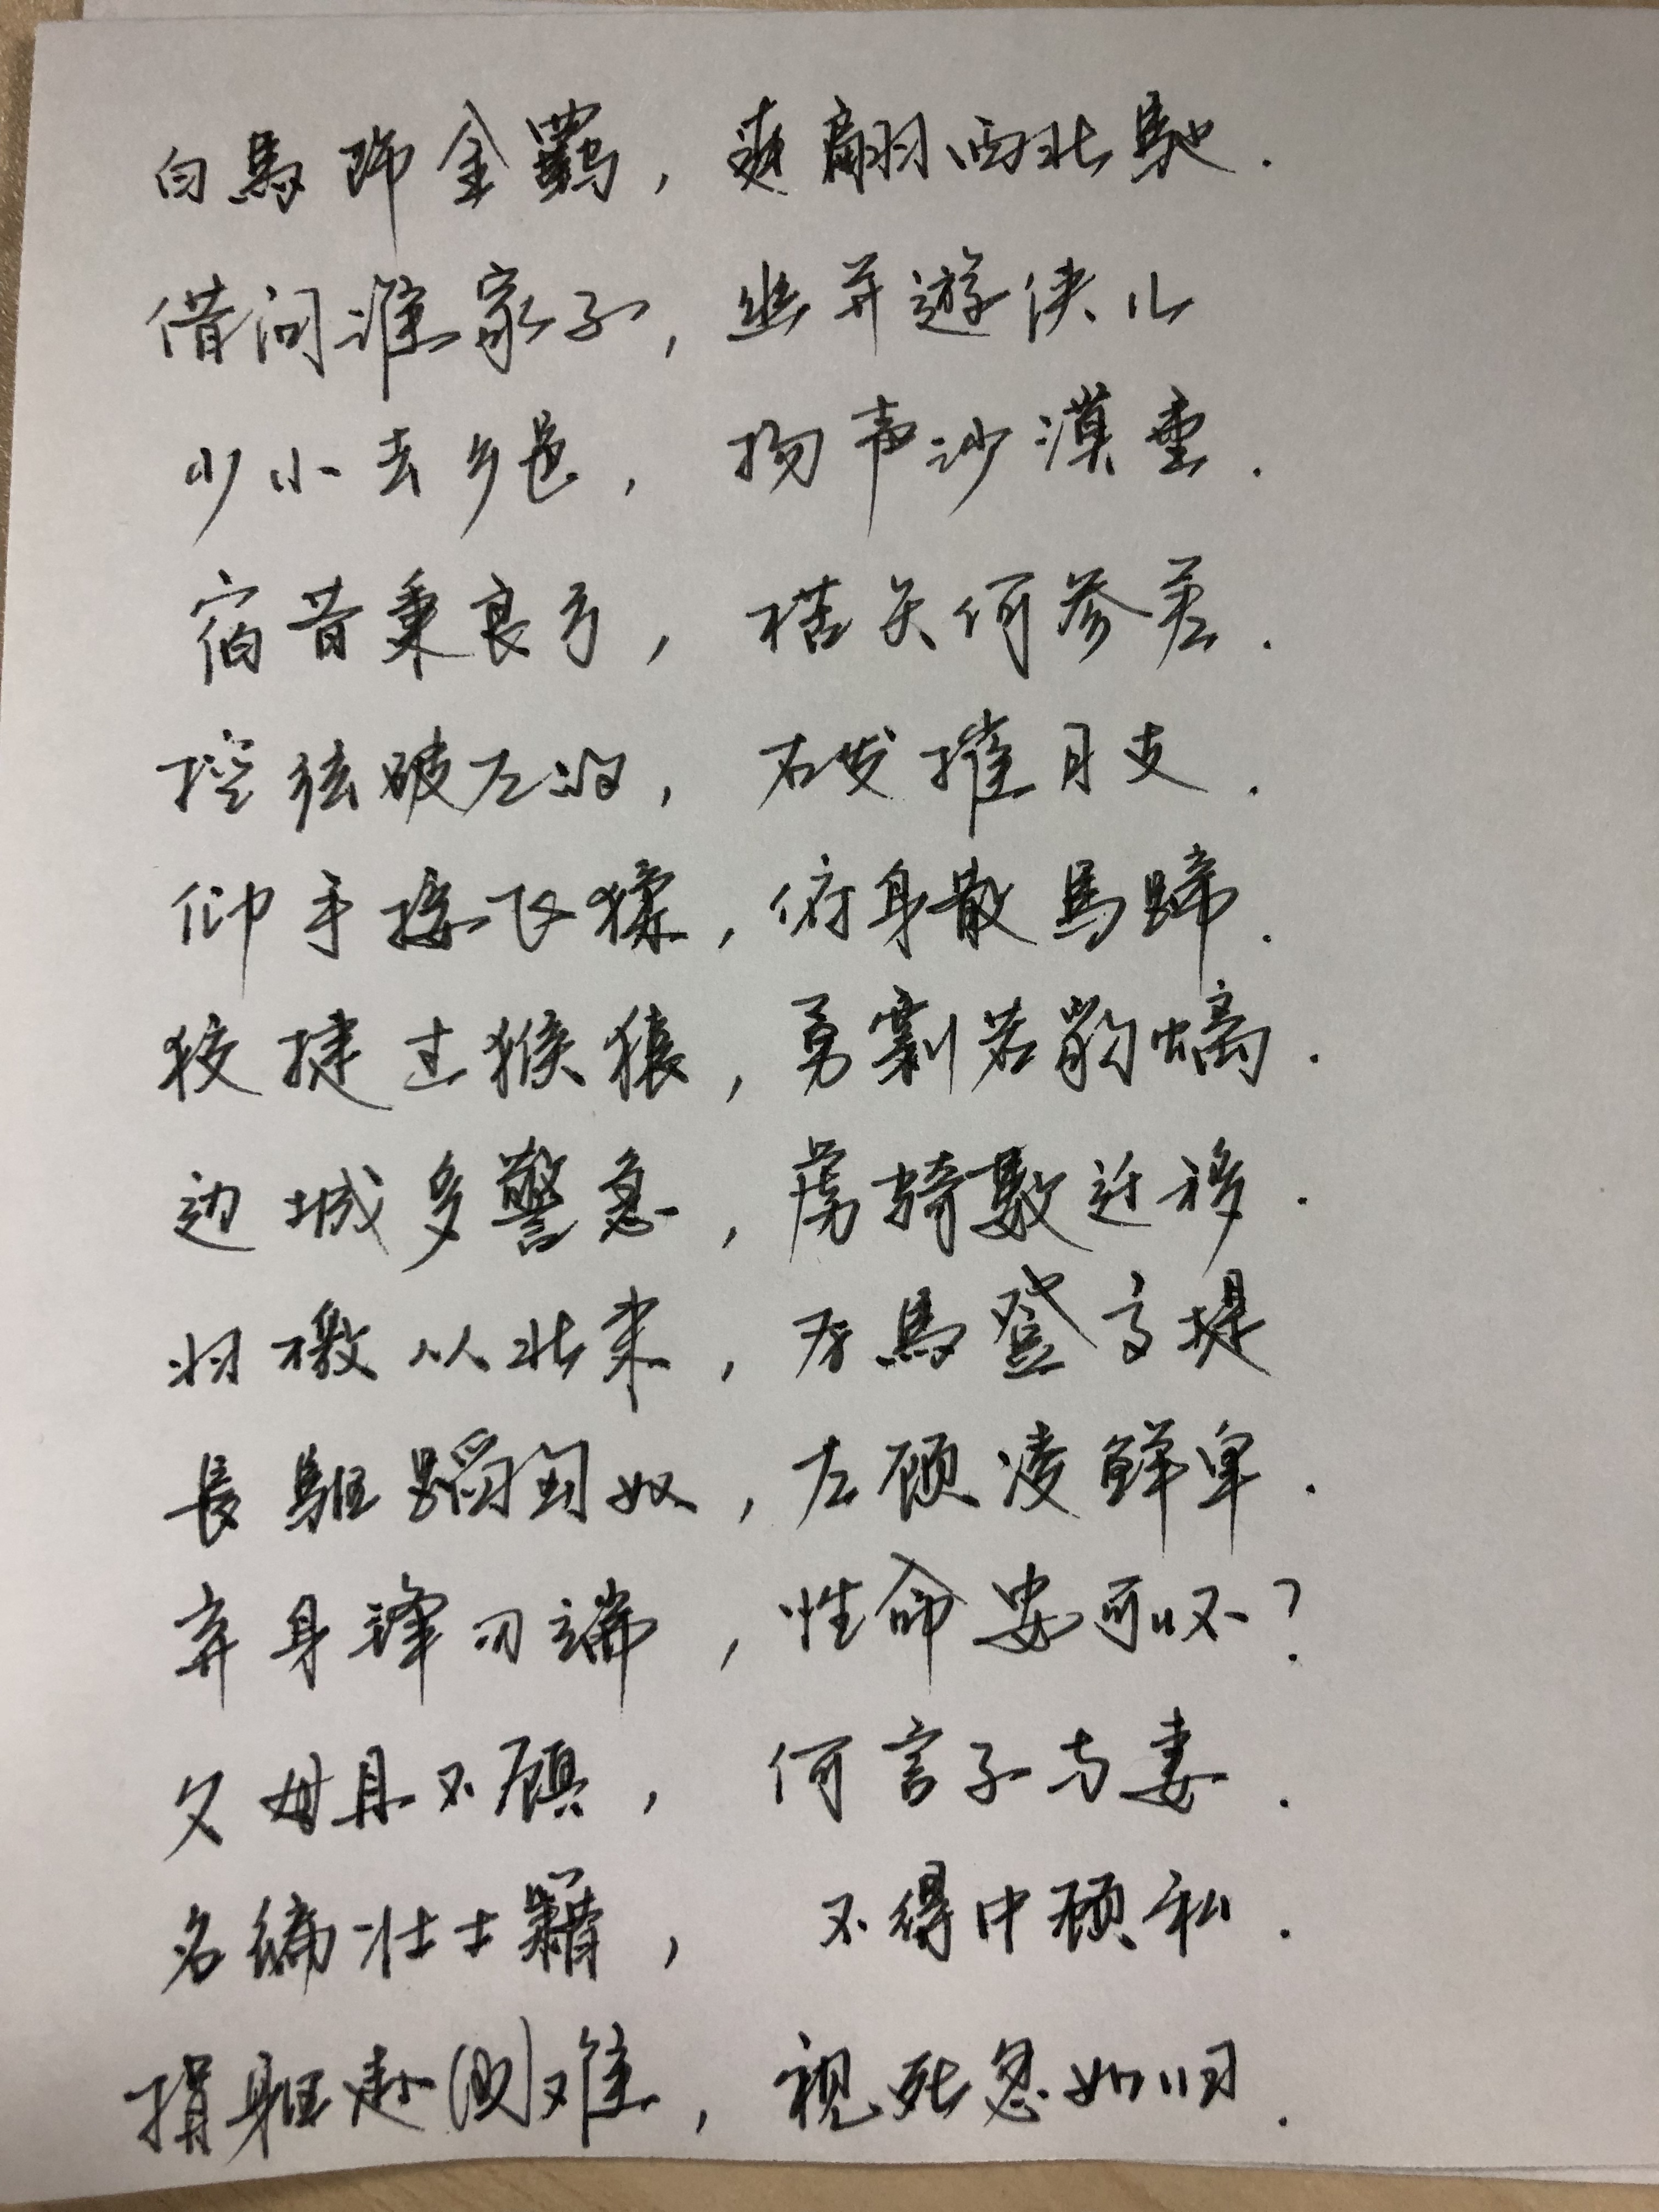 白馬饰金羈，連翩西北馳.
借问谁家子，幽并遊侠儿
少小去乡邑，扬声沙漠垂.
宿昔秉良弓，楛矢何参差.
控弦破左的，右发摧月支.
仰手接飞猱，俯身散馬蹄.
狡捷过猴猿，勇剽若豹螭.
边城多警急，虏骑数迁移.
羽檄从北来，厉馬登高堤
長駈蹈匈奴，左顾凌鲜卑.
弃身锋刃端，性命安可怀？
父母且不顾，何言子与妻.
名编壮士籍，不得中顾私.
捐躯赴国难，视死忽如归.